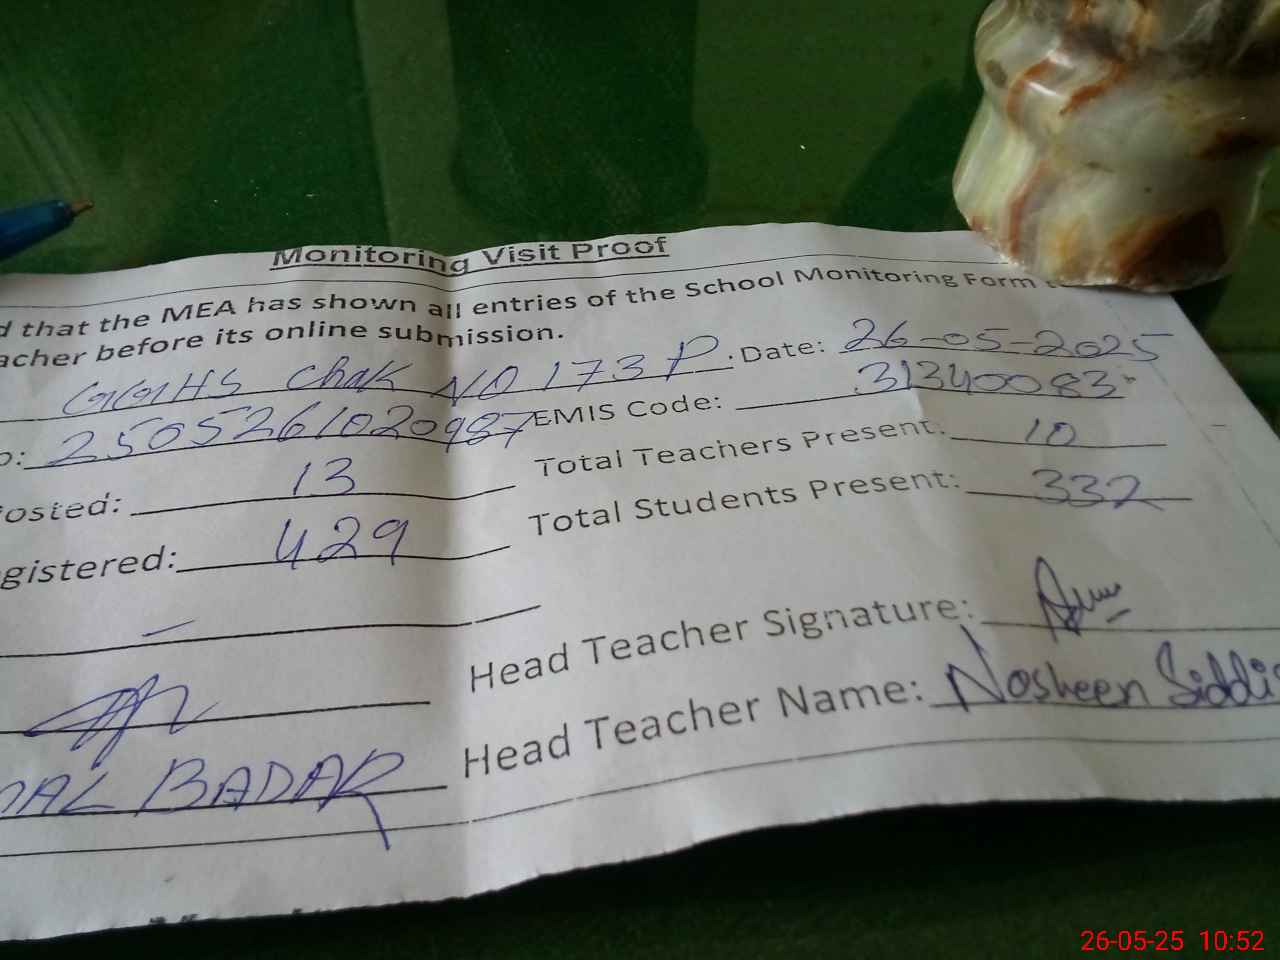 Monitoring Visit Proof
d that the MEA has shown all entries of the School Monitoring Form t
acher before its online submission.
GGHS Chak NO 173 P. Date: 26-05-2025
o: 2505261020987 EMIS Code: 31340083
osted: 13 Total Teachers Present: 10
gistered: 429 Total Students Present: 332
Head Teacher Signature:
Head Teacher Name: Nosheen Siddi
BADAR
26-05-25 10:52